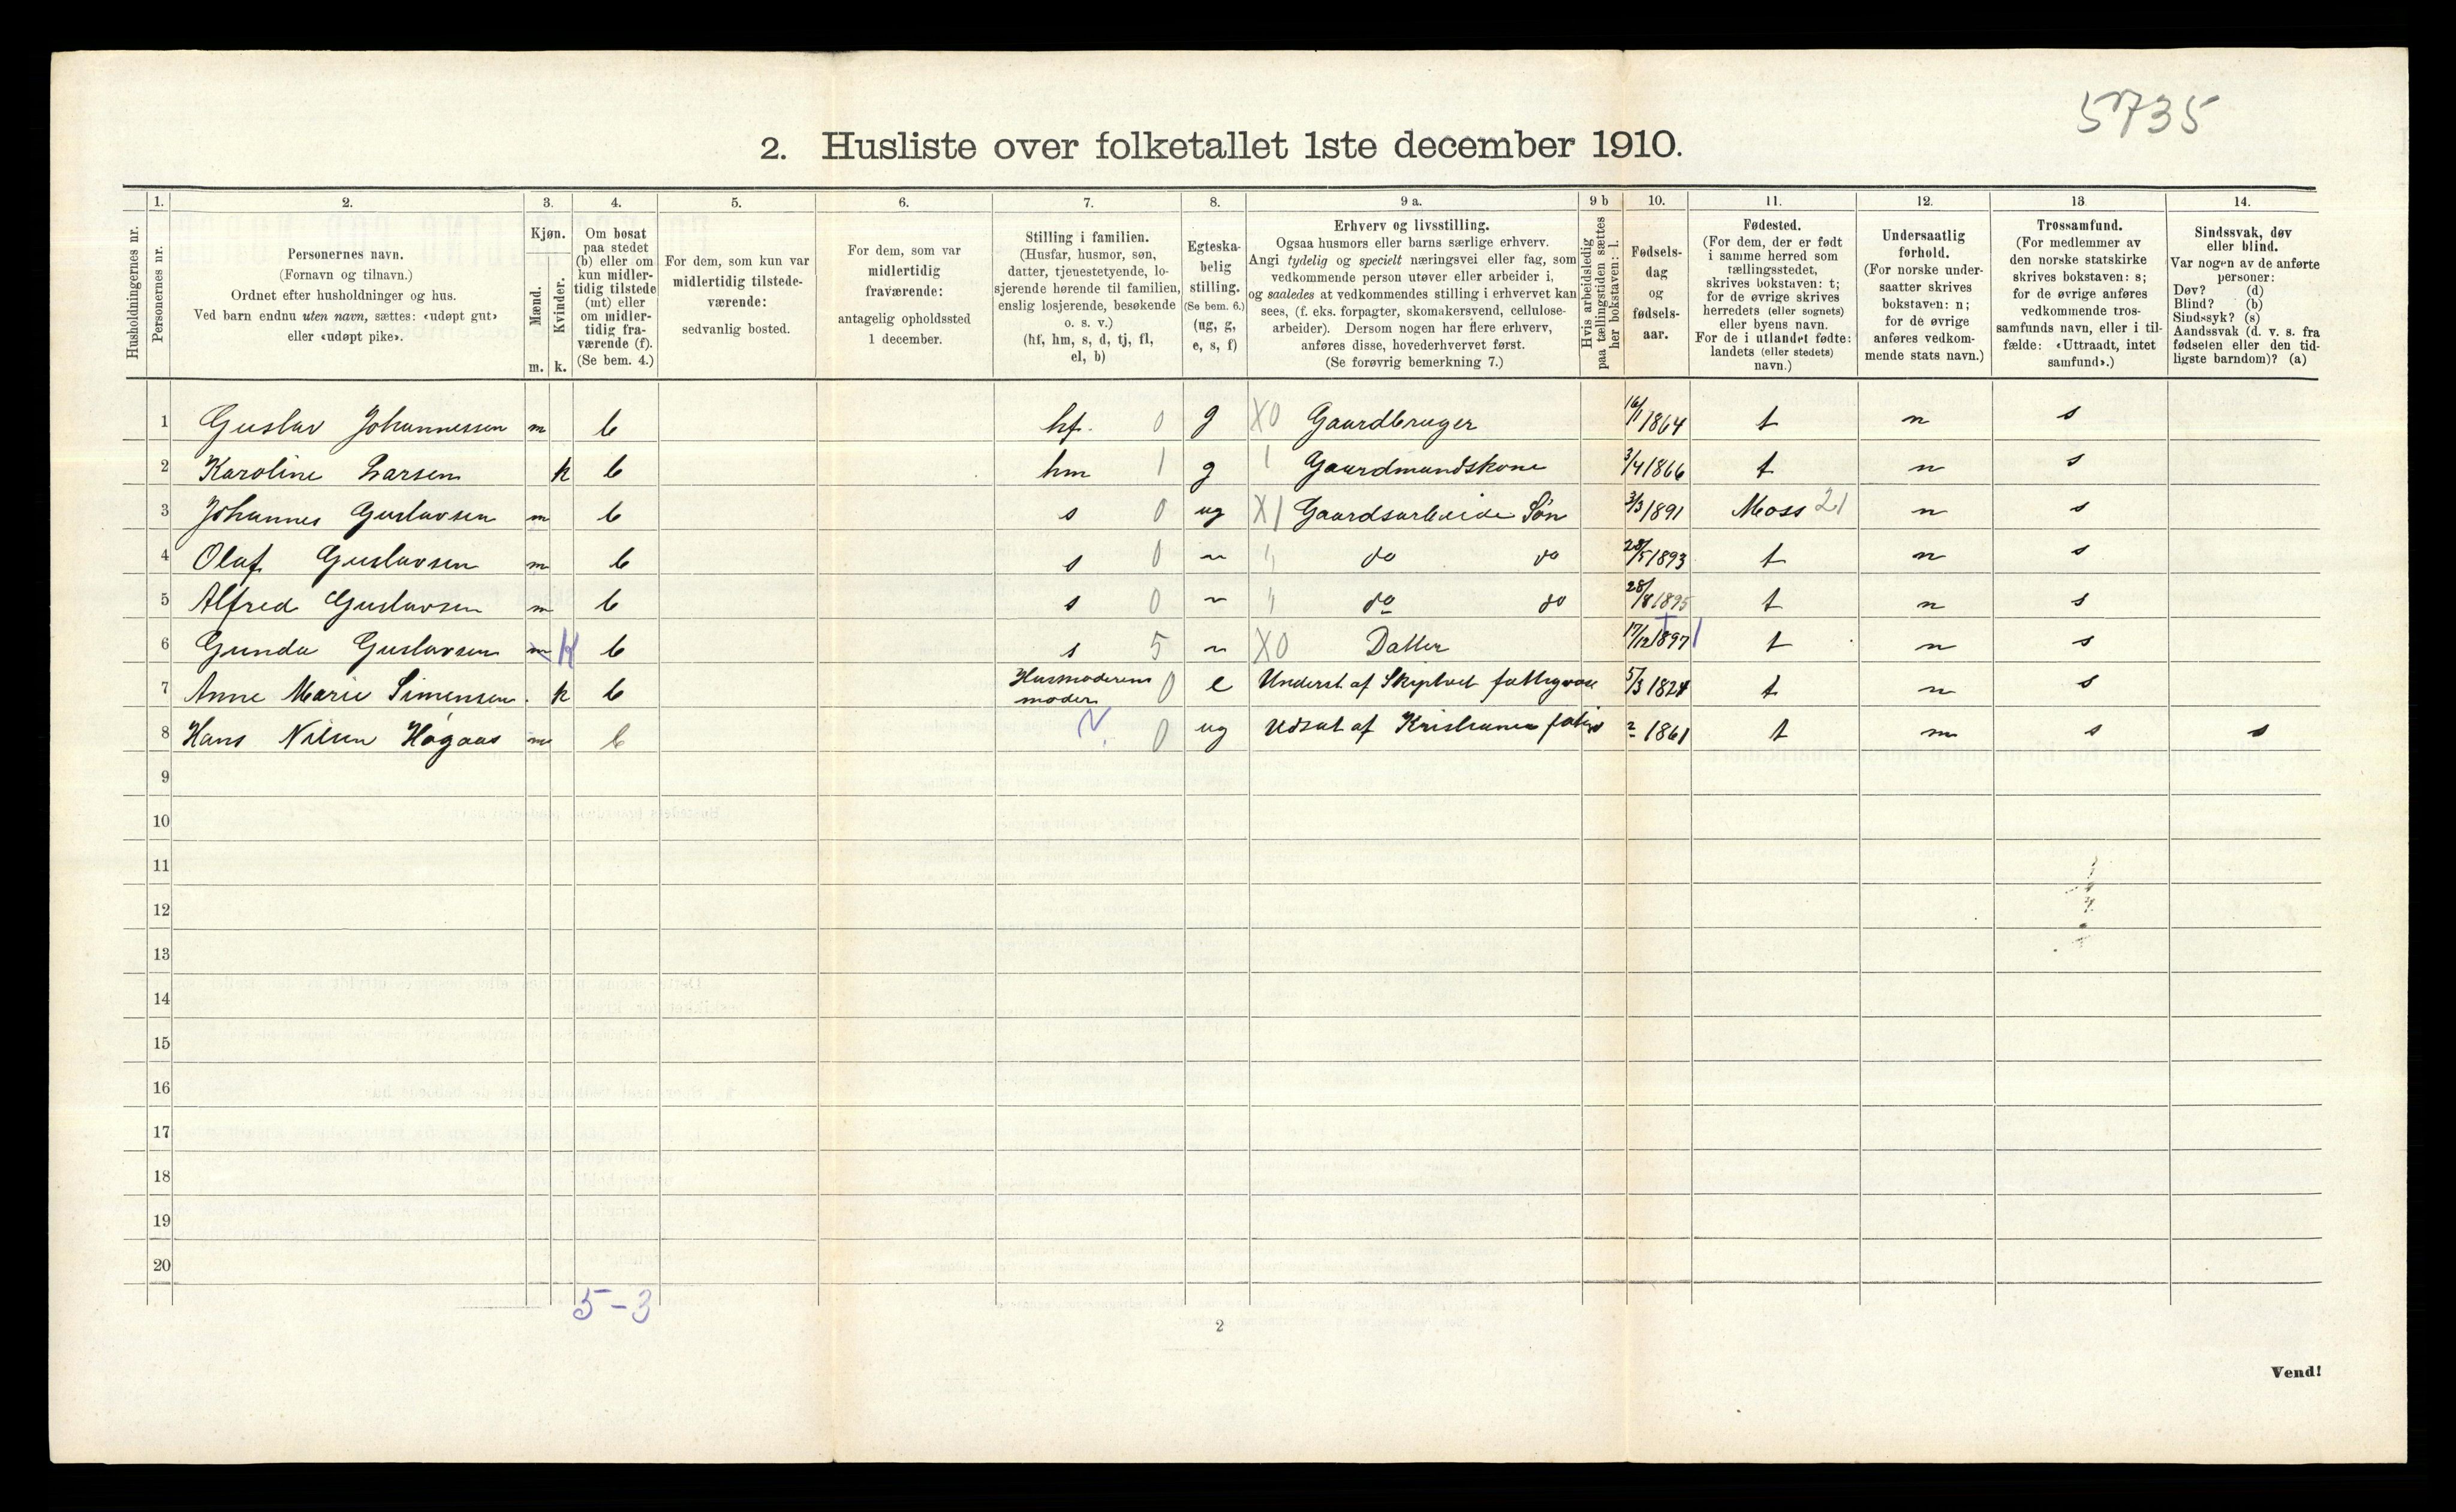 5735
2. Husliste over folketallet 1ste december 1910.
Husholdningernes nr.
1. Personernes nr.
2. Personernes navn. (Fornavn og tilnavn.) Ordnet efter husholdninger og hus. Ved barn endnu uten navn, sættes: «udøpt gut» eller «udøpt pike».
3. Kjøn. Mænd. m. Kvinder. k.
4. Om bosat paa stedet (b) eller om kun midlertidig tilstede (mt) eller om midlertidig fraværende (f). (Se bem. 4.)
5. For dem, som kun var midlertidig tilstedeværende: sedvanlig bosted.
6. For dem, som var midlertidig fraværende: antagelig opholdssted 1 december.
7. Stilling i familien. (Husfar, husmor, søn, datter, tjenestetyende, losjerende hørende til familien, enslig losjerende, besøkende o. s. v.) (hf, hm, s, d, tj, fl, el, b)
8. Egteskabelig stilling. (Se bem. 6.) (ug, g, e, s, f)
9 a. Erhverv og livsstilling. Ogsaa husmors eller barns særlige erhverv. Angi tydelig og specielt næringsvei eller fag, som vedkommende person utøver eller arbeider i, og saaledes at vedkommendes stilling i erhvervet kan sees, (f. eks. forpagter, skomakersvend, cellulosearbeider). Dersom nogen har flere erhverv, anføres disse, hovederhvervet først. (Se forøvrig bemerkning 7.)
9 b Hvis arbeidsledig paa tællingstiden sættes her bokstaven: l.
10. Fødselsdag og fødselsaar.
11. Fødested. (For dem, der er født i samme herred som tællingsstedet, skrives bokstaven: t; for de øvrige skrives herredets (eller sognets) eller byens navn. For de i utlandet fødte: landets (eller stedets) navn.)
12. Undersaatlig forhold. (For norske undersaatter skrives bokstaven: n; for de øvrige anføres vedkommende stats navn.)
13 Trossamfund. (For medlemmer av den norske statskirke skrives bokstaven: s; for de øvrige anføres vedkommende trossamfunds navn, eller i tilfælde: «Uttraadt, intet samfund».)
14. Sindssvak, døv eller blind. Var nogen av de anførte personer: Døv? (d) Blind? (b) Sindssyk? (s) Aandssvak (d. v. s. fra fødselen eller den tidligste barndom)? (a)
1 Gustav Johannessen m b hf. 0 g X0 Gaardbruger 16/1 1864 t n s
2 Karoline Larsen k b hm 1 g 1 Gaardmandskone 3/4 1866 t n s
3 Johannes Gustavsen m b s 0 ug X1 Gaardsarbeide Søn 3/3 1891 Moss 21 n s
4 Olaf Gustavsen m b s 0 ~ " do do 28/5 1893 t n s
5 Alfred Gustavsen m b s 0 ~ " do do 28/8 1895 t n s
6 Gunda Gustavsen m K b s 5 ~ X0 Datter 17/12 1897 t n s
7 Anne Marie Simensen. k b Husmoderens moder 0 e Underst. af Skiptvet fattigvæse 5/3 1824 t n s
8 Hans Nilsen Høgaas m b 0 ug Udsat af Kristiania 1861 t n s s
9
10
11
12
13
14
15
16
17
18
19
20
5-3
2
Vend!